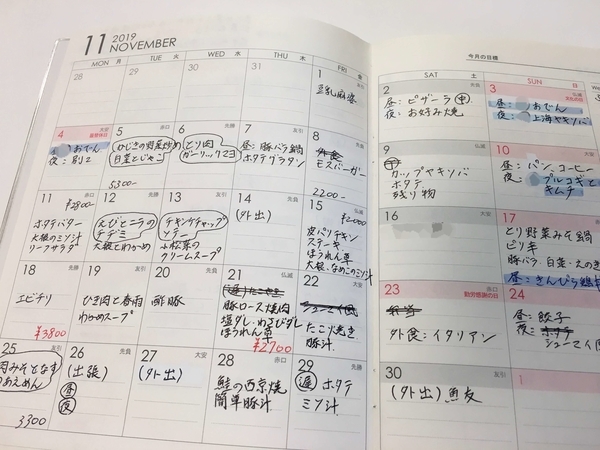 11 2019
NOVEMBER
今月の目標
MON 月
TUE 火
WED 水
THU 木
FRI 金
SAT 土
SUN 日
28
29
30
31
1 友引
豆乳麻婆
2 先負
昼:ピザーラ 中
夜:お好み焼
3 仏滅
文化の日
昼: おでん
夜: 上海ヤキソバ
4 大安
振替休日
昼: おでん
夜:別々
5 赤口
ひじきの野菜炒め
白菜とじゃこ
5300-
6 先勝
とり肉
ガーリックマヨ
7 友引
昼:豚バラ鍋
ホタテグラタン
8 先負
外食
モスバーガー
2200-
9 仏滅
中
カップヤキソバ
ホタテ
残り物
10 大安
昼: パン、コーヒー
夜: プルコギと
キムチ
11 赤口
¥2800-
ホタテバター
大根のミソ汁
リーフサラダ
12 先勝
えびとニラの
チヂミ
大根とわかめ
13 友引
チキンチャップ
ソテー
小松菜の
クリームスープ
14 先負
(外出)
15 仏滅
¥2000-
皮パリチキン
ステーキ
ほうれん草
大根、なめこのミソ汁
16 大安
17 赤口
とり野菜みそ鍋
ピリ辛
豚バラ・白菜・えのき
昼:きんぴら
18 先勝
エビチリ
¥3800
19 友引
ひき肉と春雨
わかめスープ
20 先負
酢豚
21 仏滅
豚ロース焼肉
塩ダレ・わさびダレ
ほうれん草
¥2700
22 大安
シューマイ
たこ焼き
豚汁
23 赤口
勤労感謝の日
弁当
外食:イタリアン
24 先勝
昼:餃子
夜:ホタテ
シューマイ
25 友引
肉みそとなす
のあえめん
3300
26 先負
(出張)
昼
夜
27 大安
(外出)
28 赤口
鮭の西京焼
簡単豚汁
29 先勝
遅 ホタテ
ミソ汁
30 友引
(外出) 魚友
1